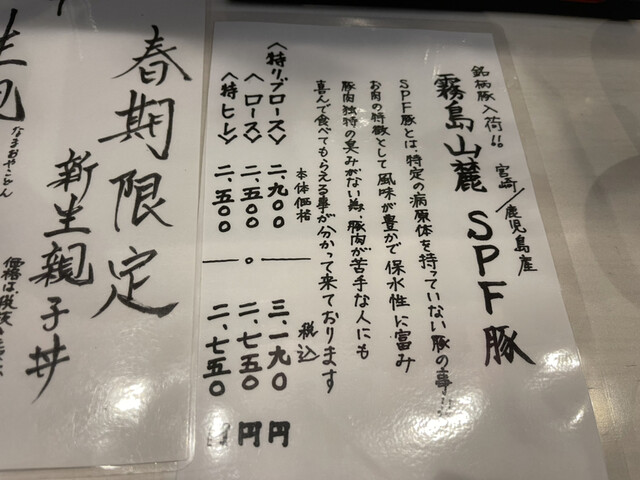 銘柄豚入荷!! 宮崎/鹿児島産
霧島山麓 SPF豚
SPF豚とは、特定の病原体を持っていない豚の事!!
お肉の特徴として風味が豊かで保水性に富み
豚肉独特の臭みがない為、豚肉が苦手な人にも
喜んで食べてもらえる事が分かって来ております
本体価格 税込
〈特リブロース〉 二、九〇〇 三、一九〇円
〈ロース〉 二、五〇〇 二、七五〇円
〈特ヒレ〉 二、五〇〇 二、七五〇円
春期限定
新生親子丼
なまおやこ